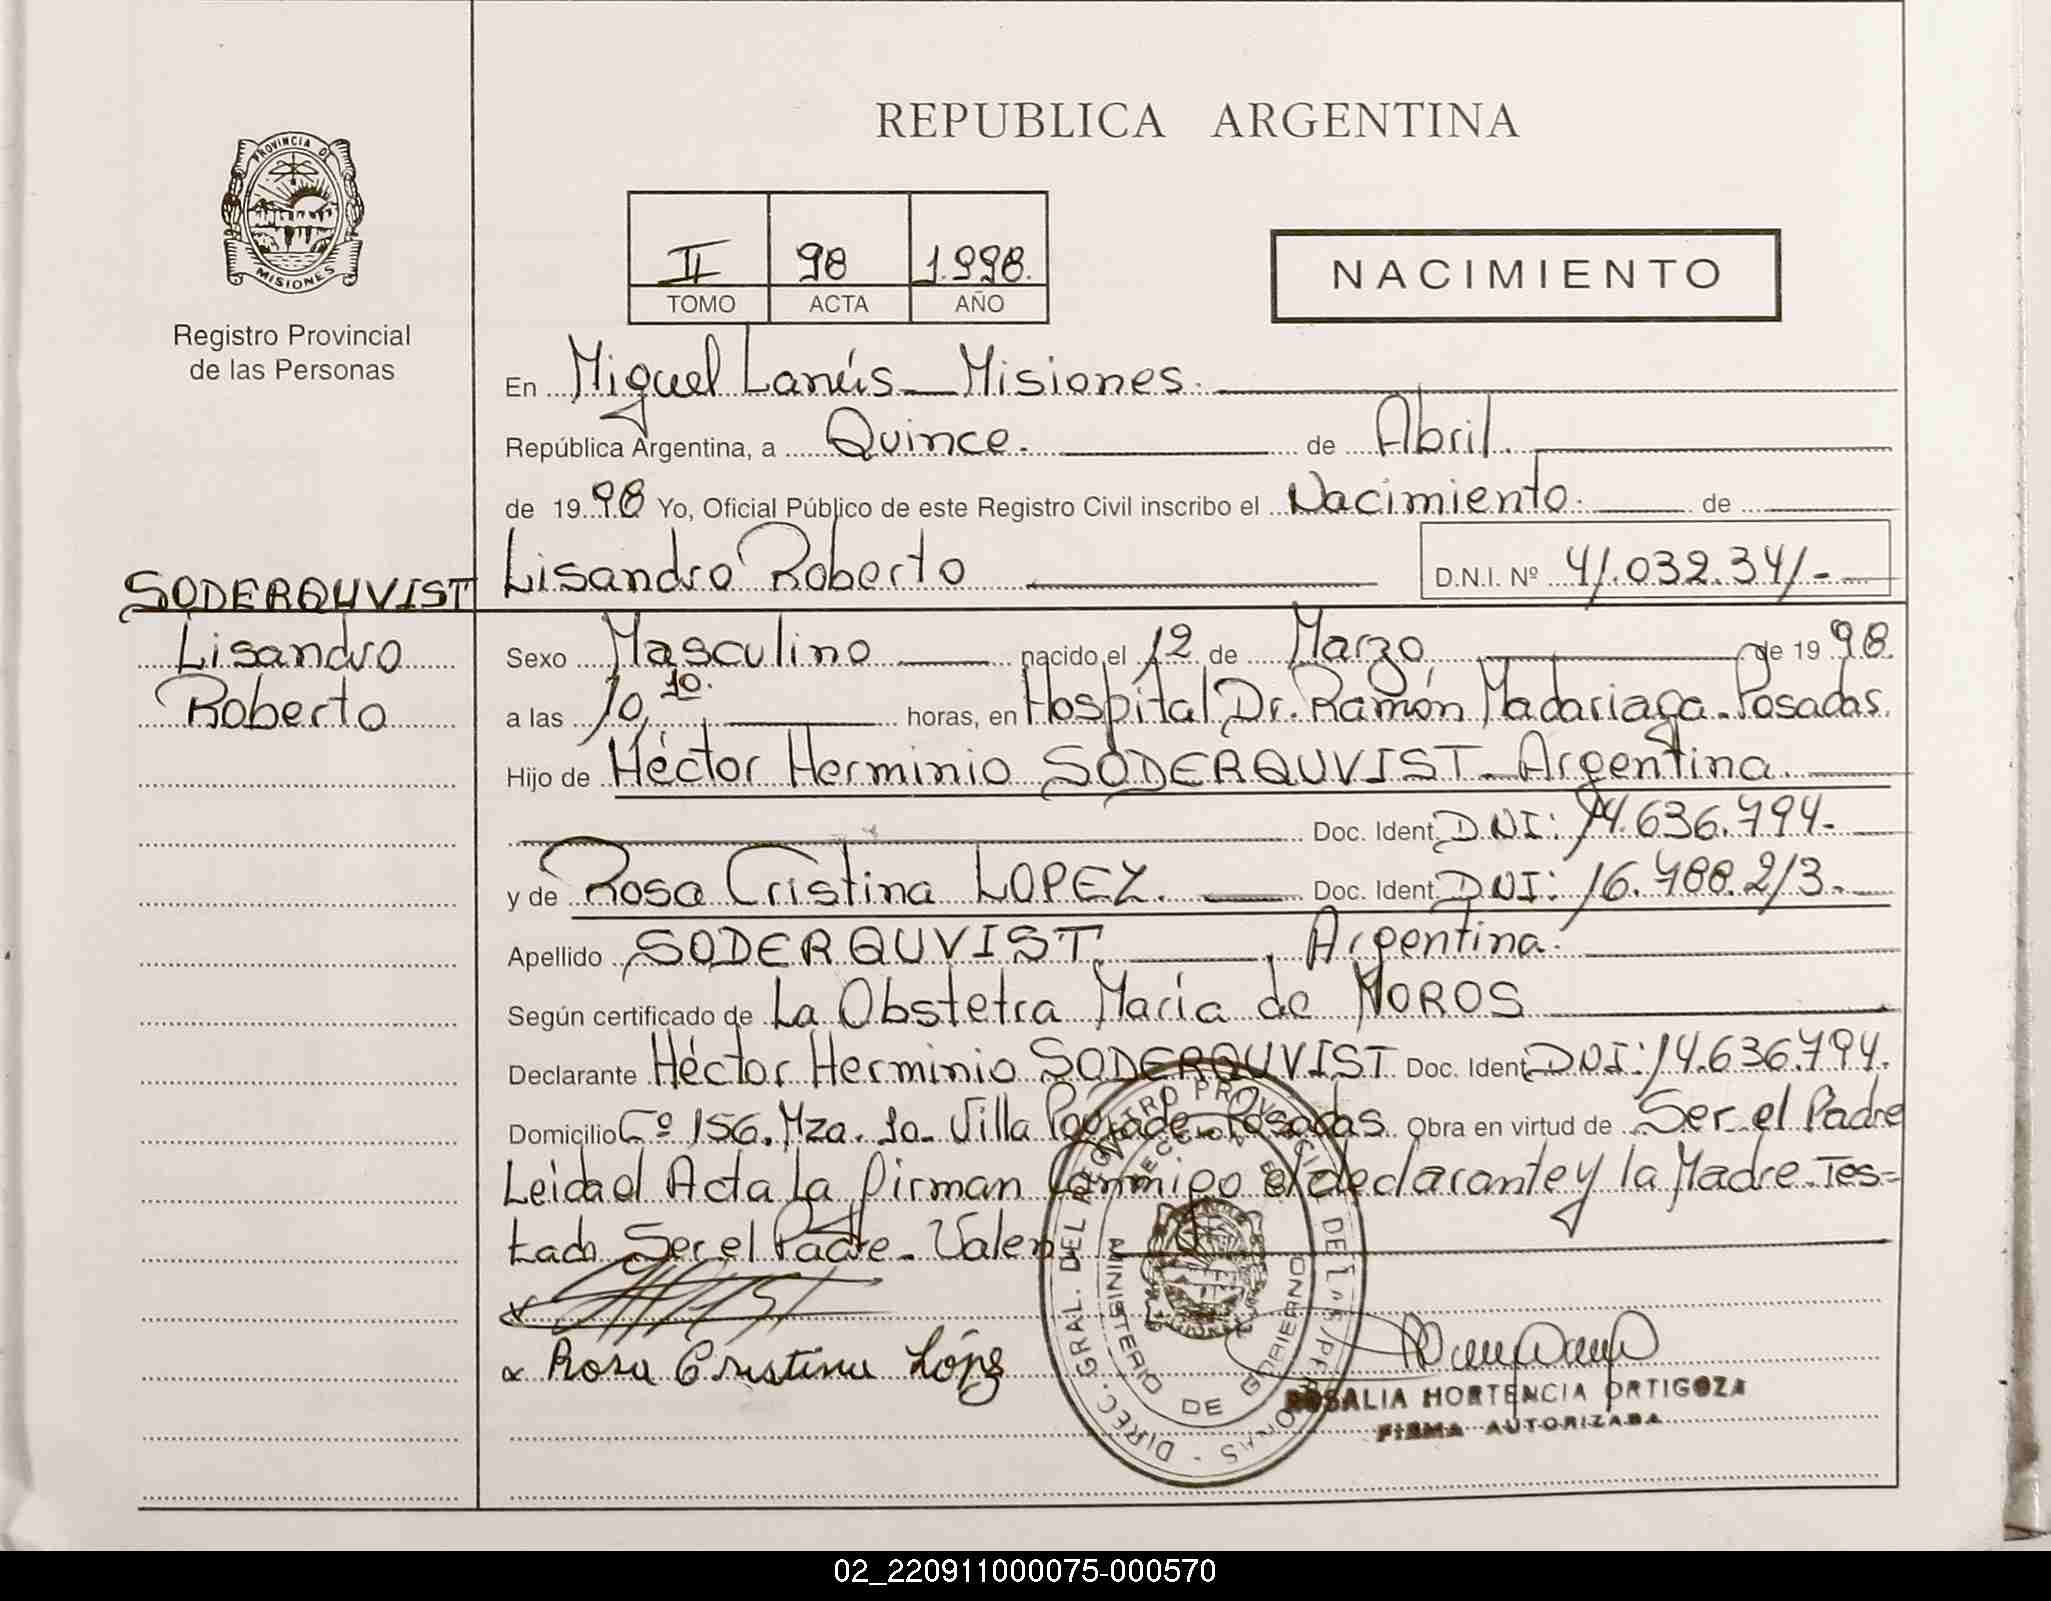 REPUBLICA ARGENTINA
PROVINCIA DE
MISIONES
Registro Provincial
de las Personas
II 98 1.998.
TOMO ACTA AÑO
NACIMIENTO
En Miguel Lanús - Misiones.
República Argentina, a Quince. de Abril.
de 1998 Yo, Oficial Público de este Registro Civil inscribo el Nacimiento. de
Lisandro Roberto D.N.I. Nº 41.032.341.-
SODERQUVIST
Lisandro
Roberto
Sexo Masculino nacido el 12 de Marzo de 1998.
a las 10,10. horas, en Hospital Dr. Ramón Madariaga. Posadas.
Hijo de Héctor Herminio SODERQUVIST - Argentina.
Doc. Ident. DNI: 14.636.794.
y de Rosa Cristina LOPEZ. Doc. Ident. DNI: 16.788.213.
Apellido SODERQUVIST. , Argentina.
Según certificado de La Obstetra María de MOROS
Declarante Héctor Herminio SODERQUVIST Doc. Ident. DNI: 14.636.794.
Domicilio Cº 156. Mza. 10. Villa Posadas. Obra en virtud de Ser el Padre
Leida el Acta La firman Conmigo el declarante y la Madre. Tes-
tado Ser el Padre - Valen
Rosa Cristina López
DIREC. GRAL. DEL REGISTRO PROVINCIAL DE LAS PERSONAS
MINISTERIO DE GOBIERNO
ROSALIA HORTENCIA ORTIGOZA
FIRMA AUTORIZADA
02_220911000075-000570